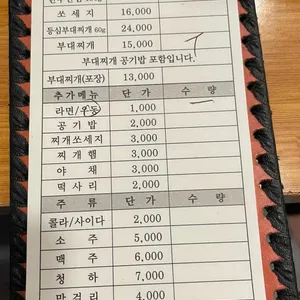 쏘세지 16,000
등심부대찌개 60g 24,000
부대찌개 15,000
부대찌개 공기밥 포함입니다.
부대찌개(포장) 13,000
추가메뉴 단가 수량
라면/우동 1,000
공기밥 2,000
찌개쏘세지 3,000
찌개햄 3,000
야채 3,000
떡사리 2,000
주류 단가 수량
콜라/사이다 2,000
소주 5,000
맥주 6,000
청하 7,000
막걸리 4,000